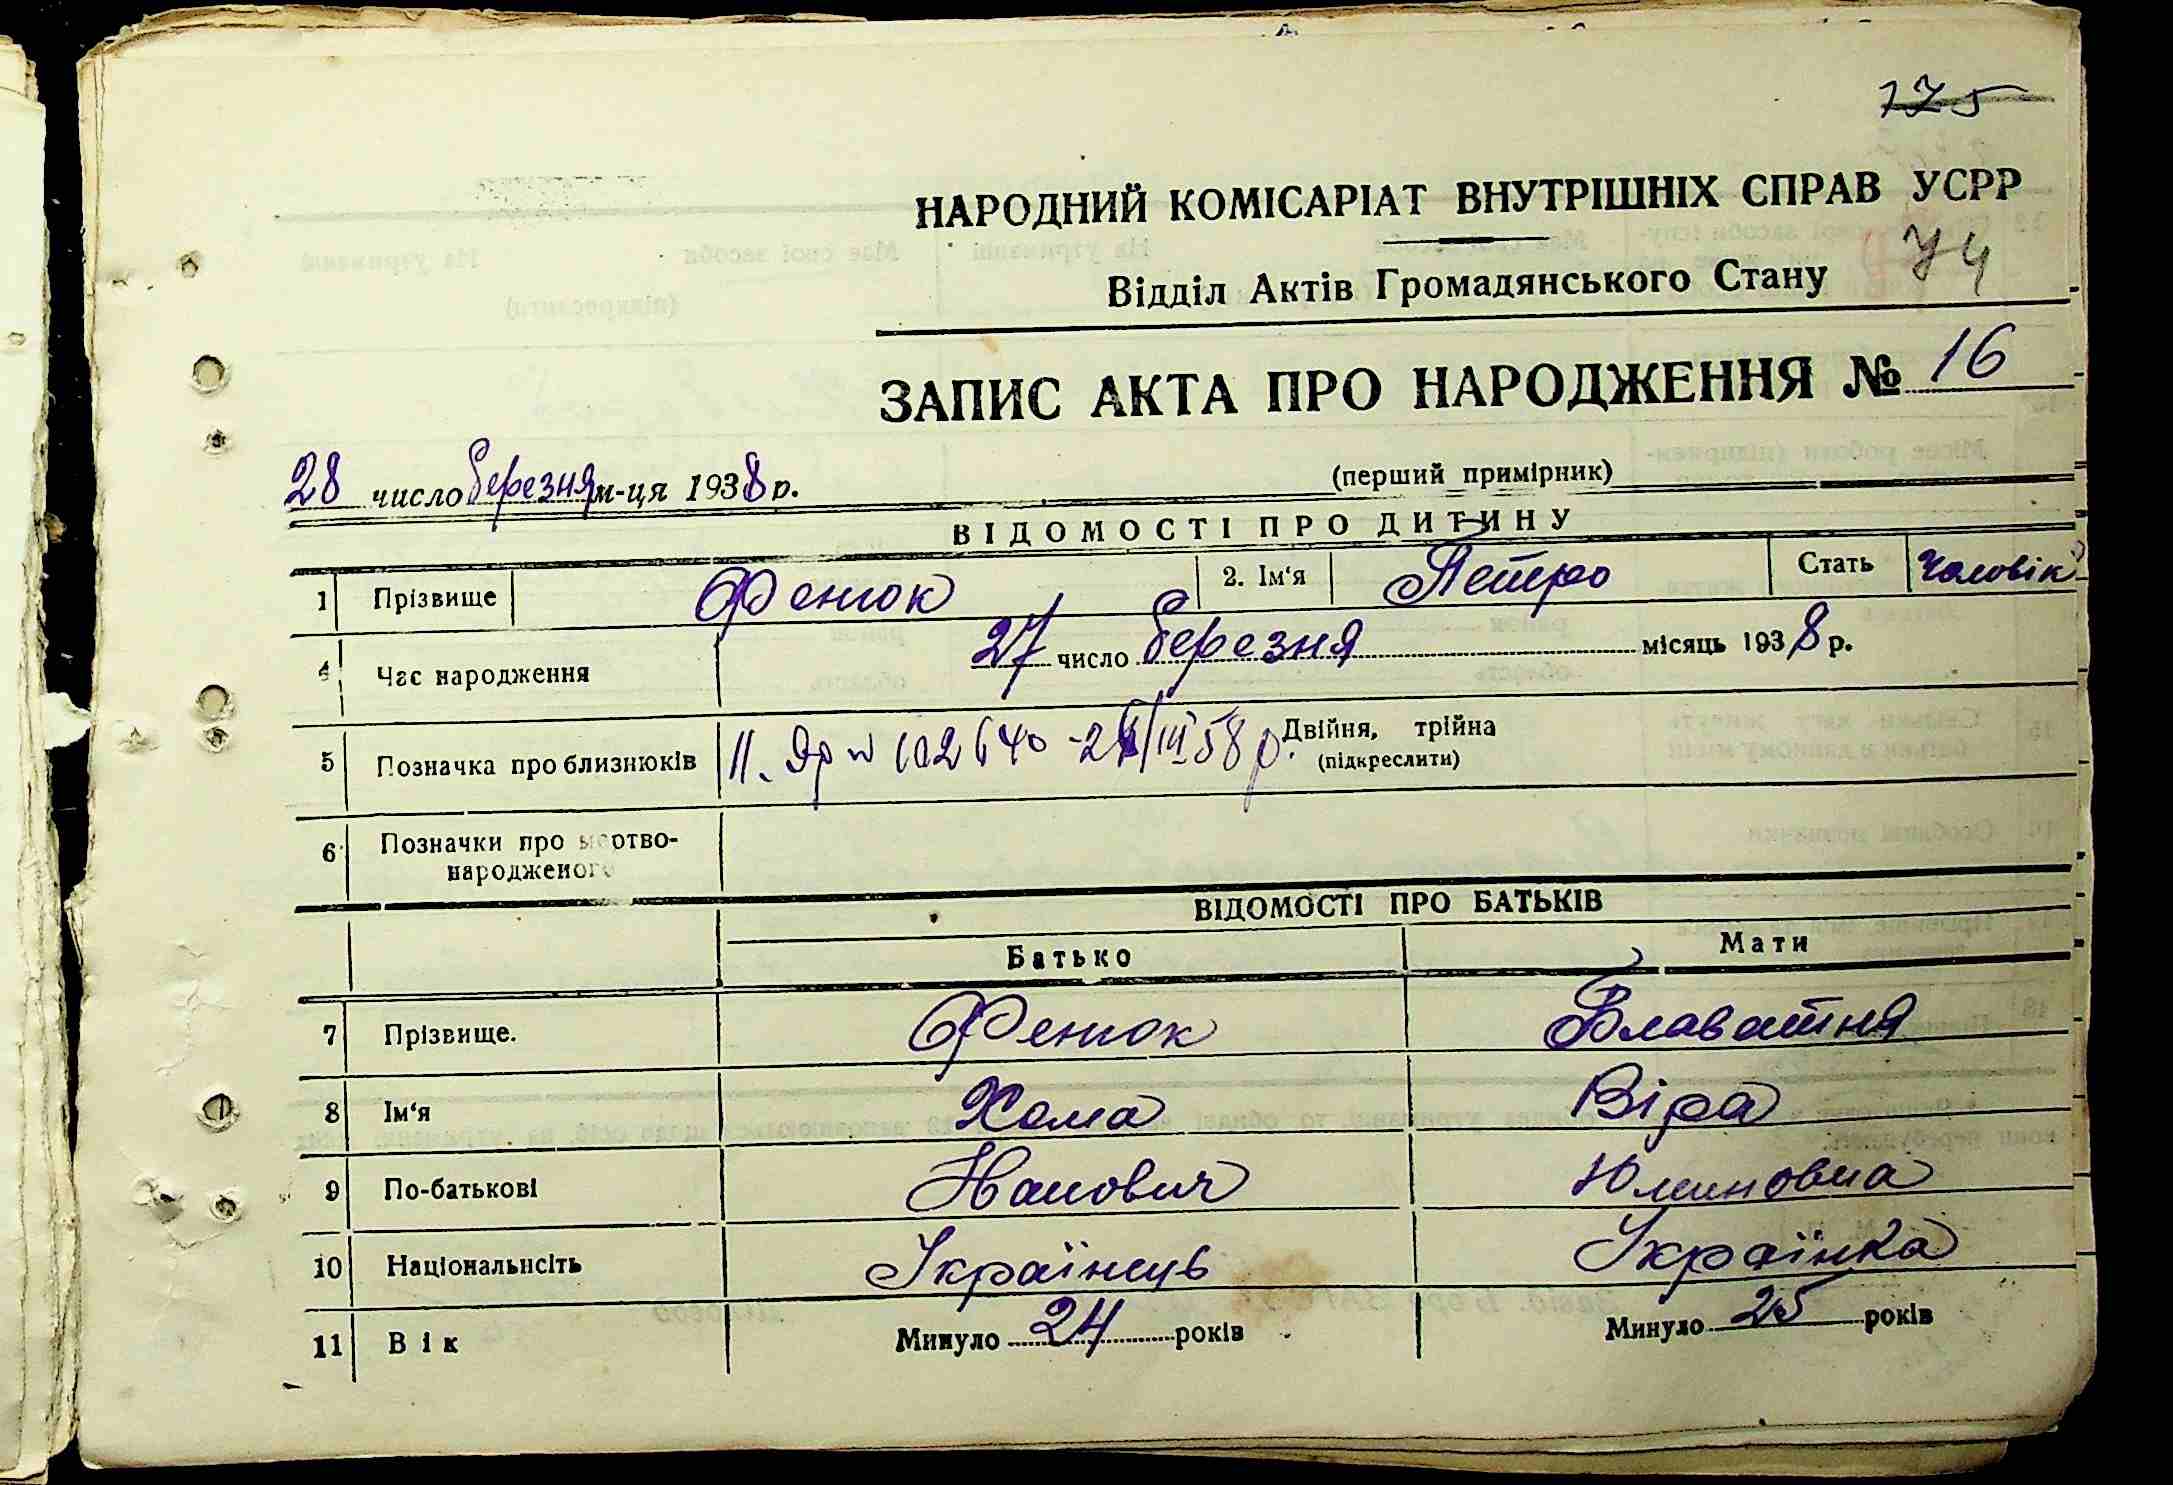 175
НАРОДНИЙ КОМІСАРІАТ ВНУТРІШНІХ СПРАВ УСРР
74
Відділ Актів Громадянського Стану
ЗАПИС АКТА ПРО НАРОДЖЕННЯ № 16
28 число березня м-ця 1938 р. (перший примірник)
ВІДОМОСТІ ПРО ДИТИНУ
1 Прізвище Фенюк 2. Ім'я Петро Стать Чоловік
4 Час народження 27 число березня місяць 1938 р.
5 Позначка про близнюків 102640 58 р. Двійня, трійна
(підкреслити)
6 Позначки про мертво-
народженого
ВІДОМОСТІ ПРО БАТЬКІВ
Батько Мати
7 Прізвище. Фенюк Блаватня
8 Ім'я Хома Віра
9 По-батькові
10 Національнсіть Українець Українка
11 Вік Минуло 24 років Минуло 25 років